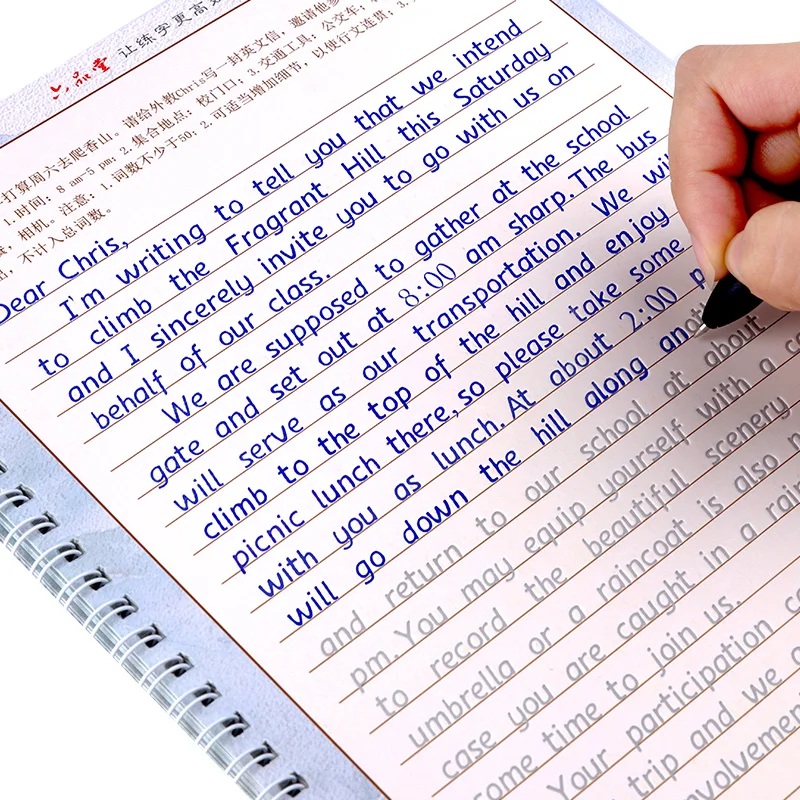 六品堂 让练字更高
打算周六去爬香山。请给外教Chris写一封英文信，邀请他
1.时间：8 am-5 pm；2.集合地点：校门口；3.交通工具：公交车；
相机。注意：1.词数不少于50；2.可适当增加细节，以使行文连贯；3.
不计入总词数。
Dear Chris,
I'm writing to tell you that we intend
to climb the Fragrant Hill this Saturday
and I sincerely invite you to go with us on
behalf of our class.
We are supposed to gather at the school
gate and set out at 8:00 am sharp. The bus
will serve as our transportation. We
climb to the top of the hill and enjoy
picnic lunch there, so please take some
with you as lunch. At about 2:00
will go down the hill along
and return to our school at about
pm. You may equip yourself with a
to record the beautiful scenery
umbrella or a raincoat is also
case you are caught in a
some time to join us.
Your participation
trip and we